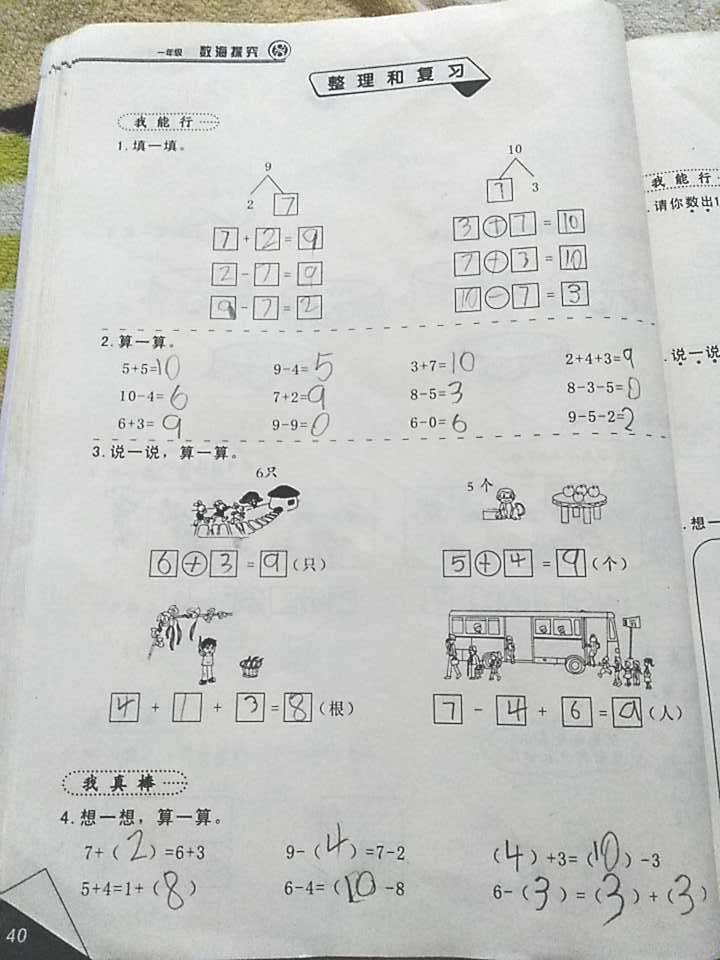 一年级 数海探究
整理和复习
我能行
1.填一填。
9
2 7
7+2=9
2-7=9
9-7=2
10
7 3
3+7=10
7+3=10
10-7=3
2.算一算。
5+5=10 9-4=5 3+7=10 2+4+3=9
10-4=6 7+2=9 8-5=3 8-3-5=0
6+3=9 9-9=0 6-0=6 9-5-2=2
3.说一说，算一算。
6只
6+3=9(只)
5个
5+4=9(个)
4+1+3=8(根)
7-4+6=9(人)
我真棒
4.想一想，算一算。
7+(2)=6+3 9-(4)=7-2 (4)+3=(10)-3
5+4=1+(8) 6-4=(10-8 6-(3)=(3)+(3)
40
我能行
.请你数出1
.说一说
.想一